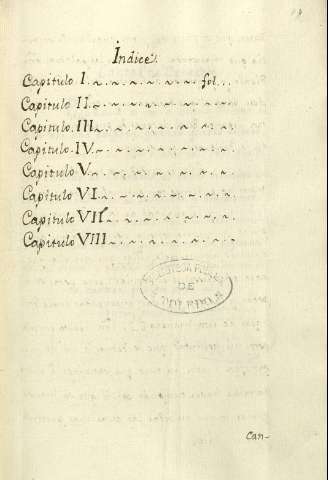 Índice.
Capitulo I. fol.
Capitulo II.
Capitulo III.
Capitulo IV.
Capitulo V.
Capitulo VI.
Capitulo VII.
Capitulo VIII.
DE
TOLEDO
Can-